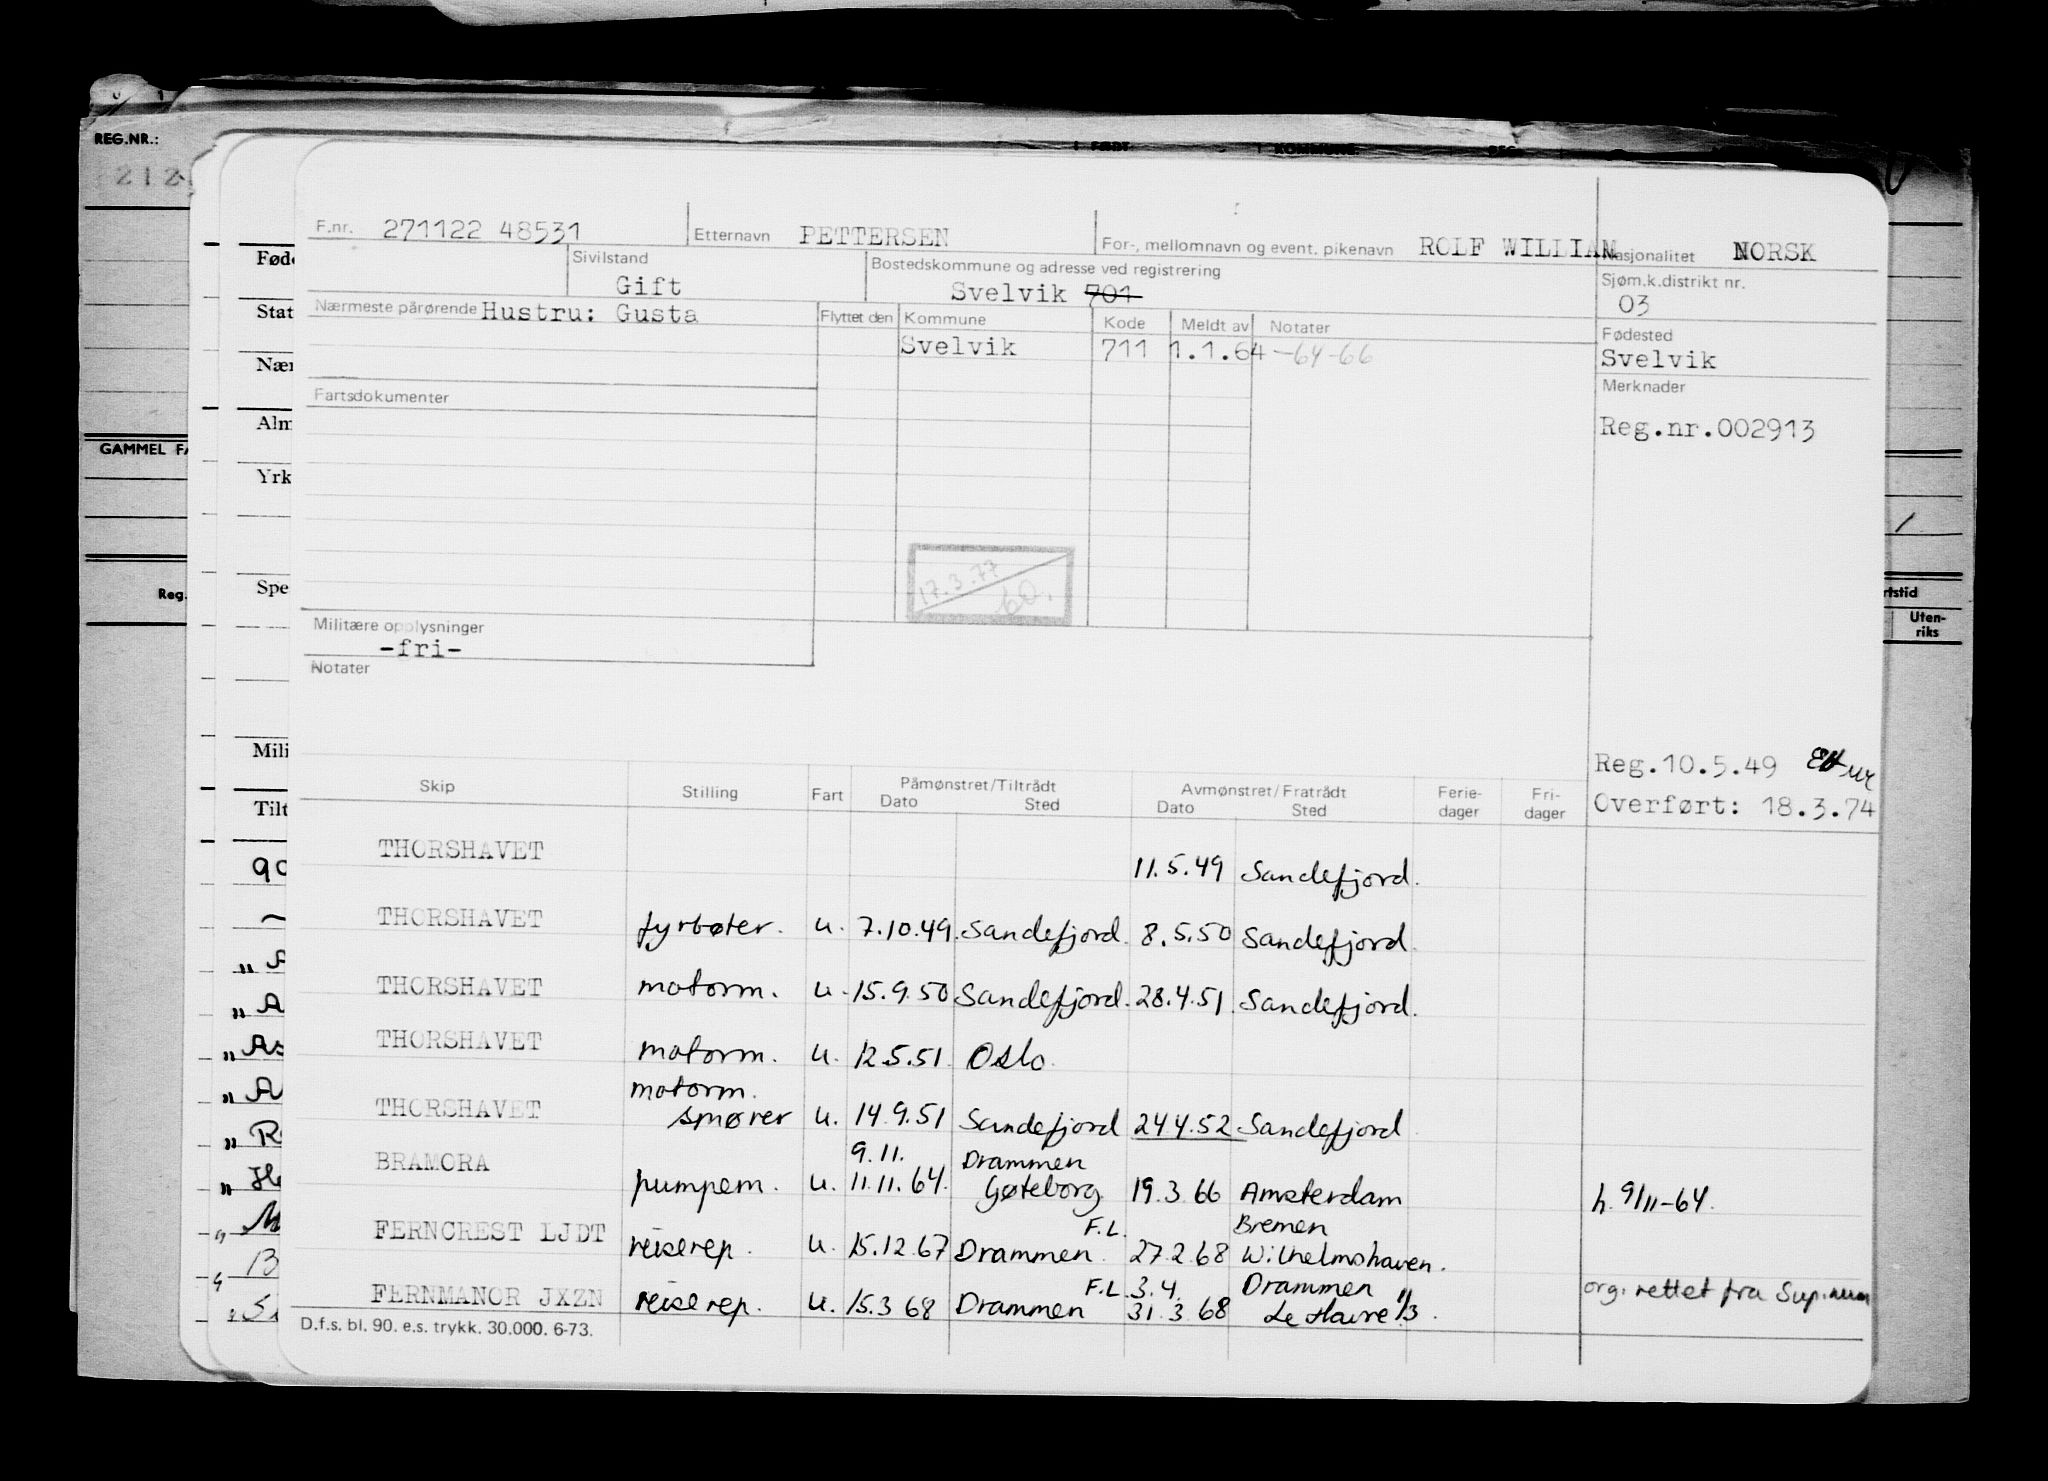 REG.NR.:
212
FØDT
KOMMUNE
F.nr. 271122 48531 Etternavn PETTERSEN For-, mellomnavn og event. pikenavn ROLF WILLIAM Nasjonalitet NORSK
Sivilstand Gift Bostedskommune og adresse ved registrering Svelvik 701 Sjøm.k.distrikt nr. 03
Nærmeste pårørende Hustru: Gusta Flyttet den Kommune Kode Meldt av Notater Fødested
Svelvik 711 1.1.64 -64-66 Svelvik
Merknader
Fartsdokumenter
Reg.nr.002913
17.3.77
60.
Militære opplysninger
-fri-
Notater
Reg.10.5.49
Overført: 18.3.74
Skip Stilling Fart Påmønstret/Tiltrådt Avmønstret/Fratrådt Ferie-dager Fri-dager
Dato Sted Dato Sted
THORSHAVET 11.5.49 Sandefjord.
THORSHAVET fyrbøter. u. 7.10.49. Sandefjord. 8.5.50 Sandefjord.
THORSHAVET motorm. u. 15.9.50 Sandefjord. 28.4.51. Sandefjord.
THORSHAVET motorm. u. 12.5.51. Oslo.
motorm.
THORSHAVET smører u. 14.9.51 Sandefjord 24.4.52. Sandefjord
9.11. Drammen
BRAMORA pumpem. u. 11.11.64. Gøteborg. 19.3.66 Amsterdam h. 9/11-64.
F.L. Bremen
FERNCREST LJDT reiserep. u. 15.12.67 Drammen. 27.2.68 Wilhelmshaven.
F.L. 3.4. Drammen
FERNMANOR JXZN reiserep. u. 15.3.68 Drammen 31.3.68 Le Havre 11/3. org. rettet fra Sup.num
D.f.s. bl. 90. e.s. trykk. 30.000. 6-73.
GAMMEL FA
Reg.
Fød
Stat
Nær
Alm
Yrk
Spe
Mili
Tilt
rtstid
Uten-
riks